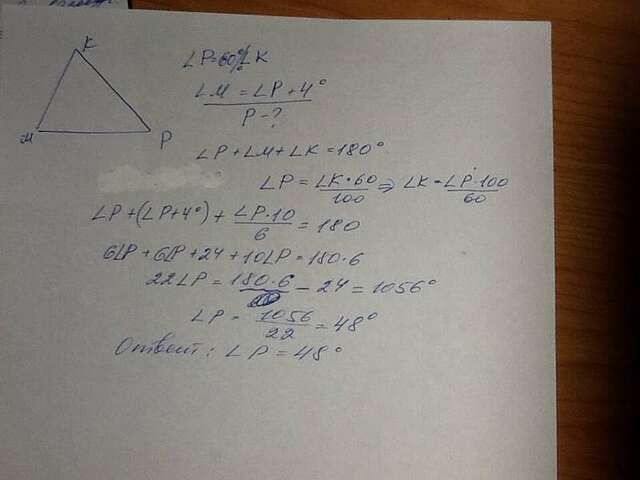 K
M
P
∠P=60%∠K
∠M=∠P+4°
P-?
∠P+∠M+∠K=180°
∠P=∠K·60/100 ⇒ ∠K=∠P·100/60
∠P+(∠P+4°)+∠P·10/6=180
6∠P+6∠P+24+10∠P=180·6
22∠P=180·6-24=1056°
∠P=1056/22=48°
Ответ: ∠P=48°